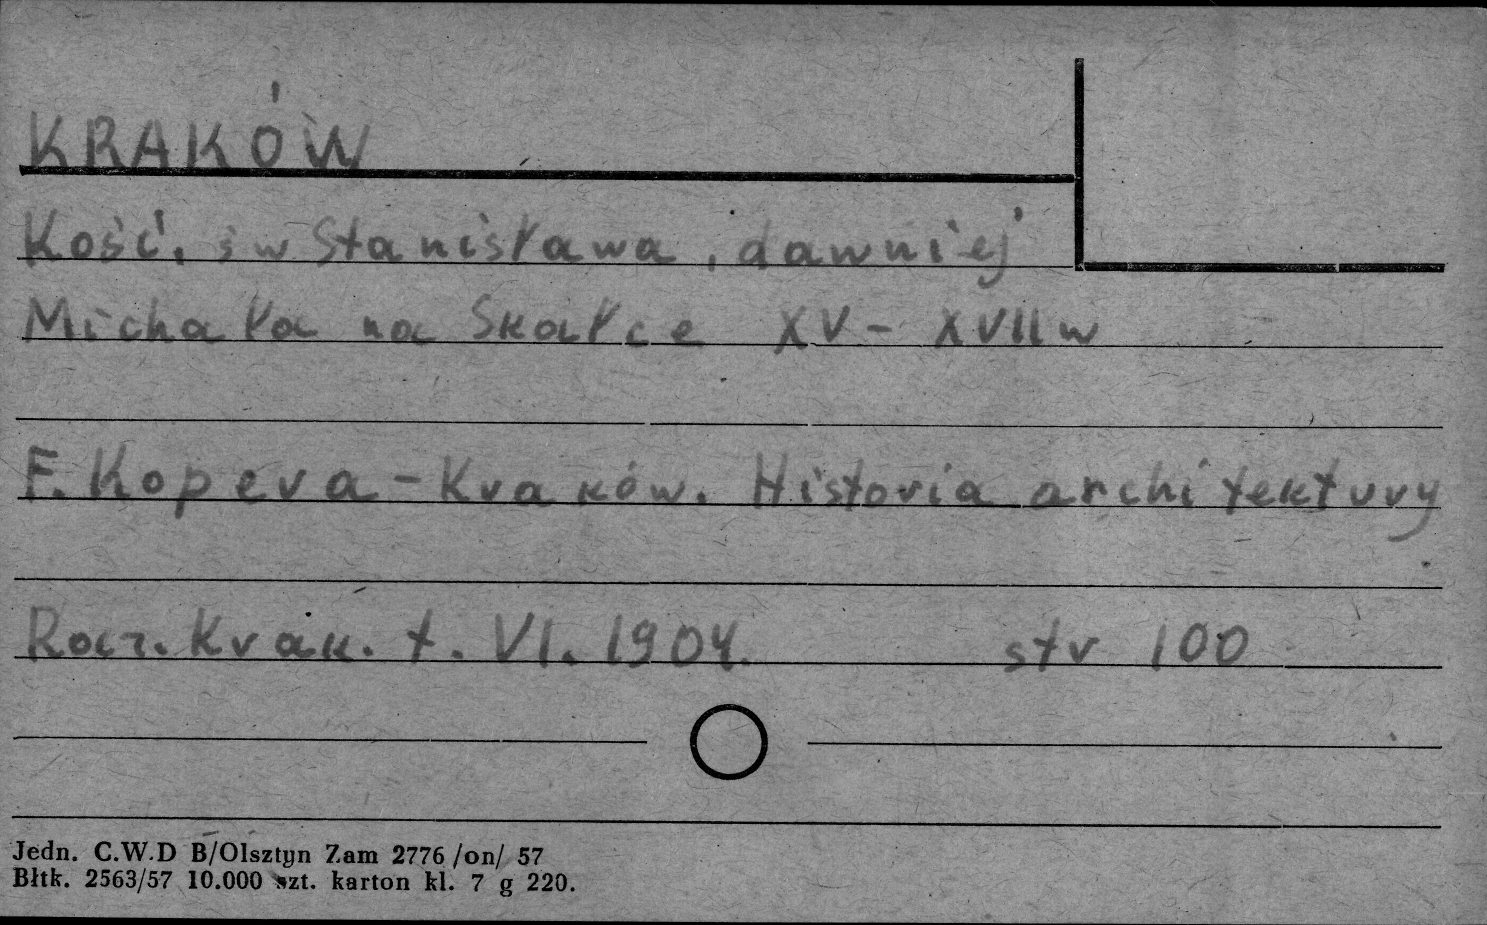 KRAKÓW
Kość. św Stanisława, dawniej
Michała na Skałce XV - XVII w
F. Kopera - Kraków. Historia architektury
Rocz. Krak. t. VI. 1904. str 100
Jedn. C.W.D B/Olsztyn Zam 2776 /on/ 57
Błtk. 2563/57 10.000 szt. karton kl. 7 g 220.